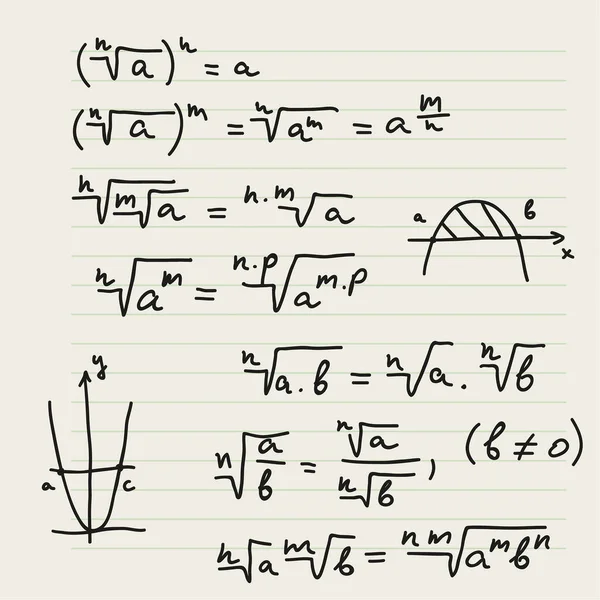 (ⁿ√a)ⁿ = a
(ⁿ√a)ᵐ = ⁿ√aᵐ = a^(m/n)
ⁿ√ᵐ√a = ⁿ·ᵐ√a
a b x
ⁿ√aᵐ = ⁿ·ᵖ√aᵐ·ᵖ
ⁿ√a·b = ⁿ√a · ⁿ√b
y
a c
ⁿ√(a/b) = ⁿ√a / ⁿ√b, (b ≠ 0)
ⁿ√a ᵐ√b = ⁿᵐ√aᵐbⁿ